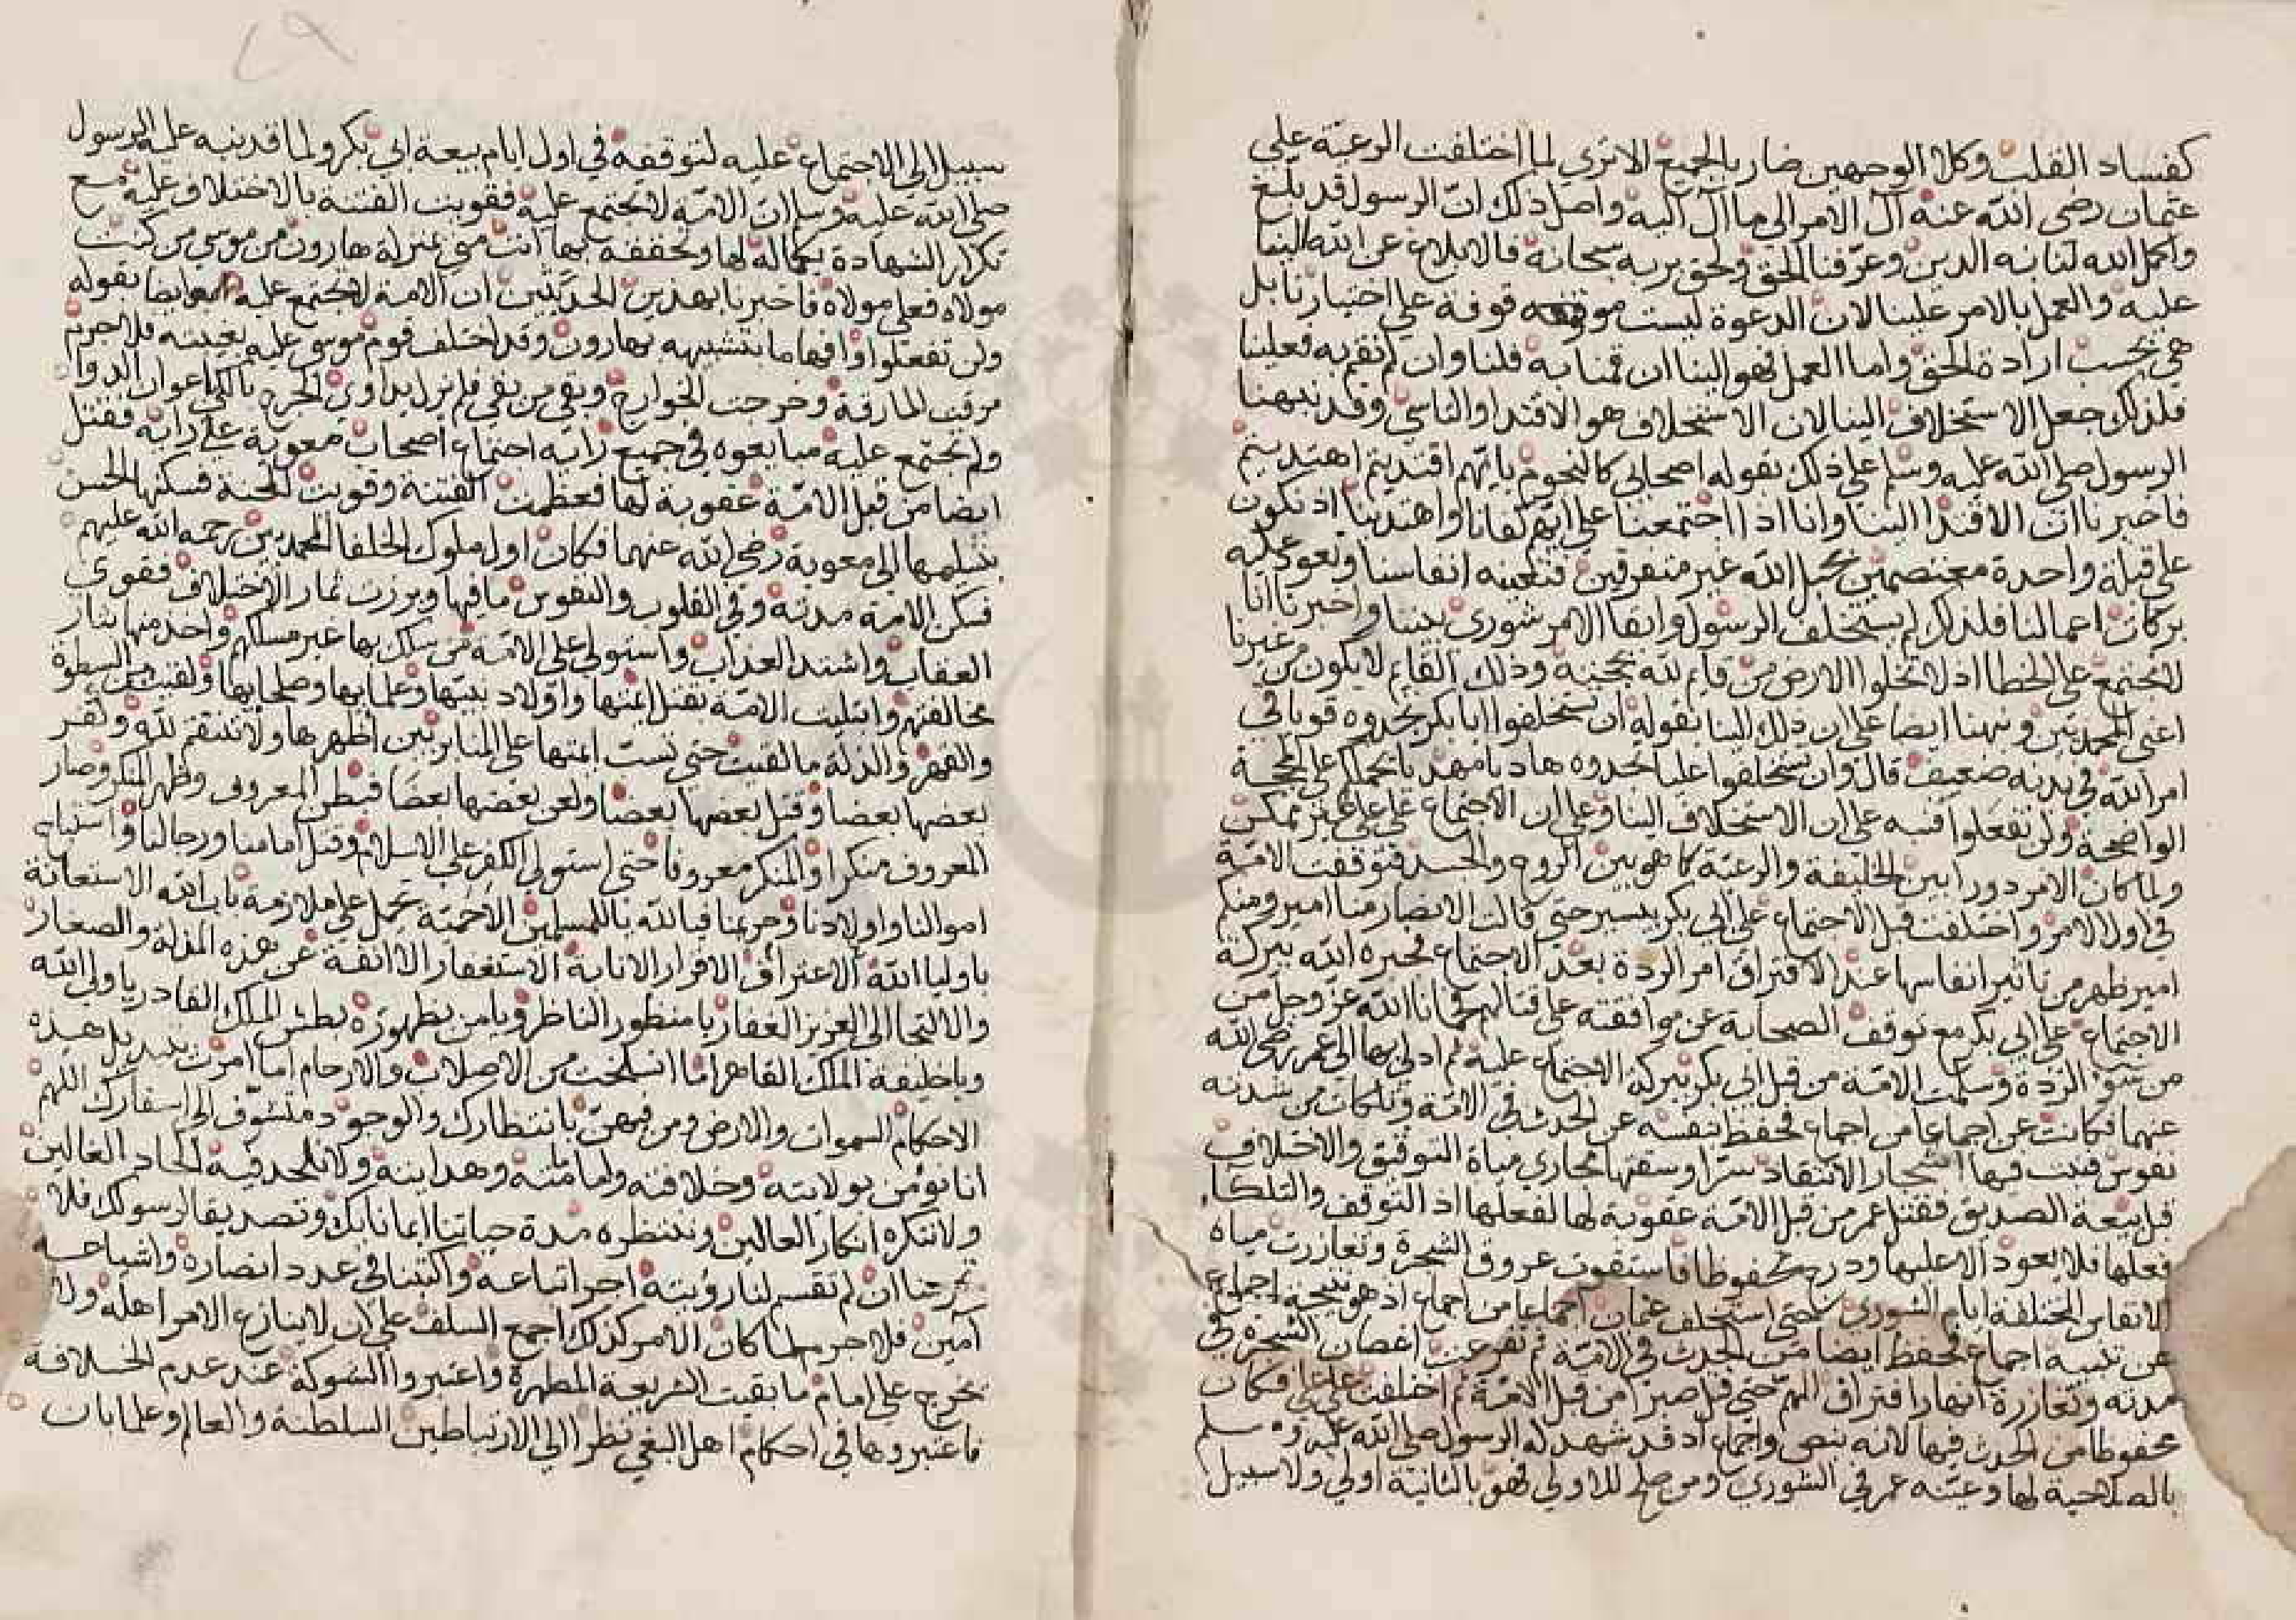 كفساد القلب وكلا الوجهين ضار بالجميع الا تري لما اختلفت الرعية علي
عثمان رضي الله عنه آل الامر الي ما آل اليه واصل ذلك ان الرسول قد بلغ
واكمل الله لنا به الدين وعرفنا الحق ولحق بربه سبحانه فالابلاغ عن الله الينا
عليه والعمل بالامر علينا لان الدعوة ليست موقوفة علي اختيارنا بل
هي بحسب ارادة الحق واما العمل فهو الينا ان قمنا به فلنا وان لم نقم به فعلينا
فلذلك جعل الاستخلاف الينا لان الاستخلاف هو الاقتدا والتاسي وقد نبهنا
الرسول صلي الله عليه وسلم علي ذلك بقوله اصحابي كالنجوم بايهم اقتديتم اهتديتم
فاخبرنا ان الاقتدا الينا وانا اذا اجتمعنا علي ايهم كفانا واهتدينا اذ نكون
علي قبلة واحدة معتصمين بحبل الله غير متفرقين فتعينه انفاسنا وتعود عليه
بركات اعمالنا فلذلك لم يستخلف الرسول وابقا الامر شوري بيننا واخبرنا انا
لا نجتمع علي الخطا اذ لا تخلوا الارض من قايم لله بحجته وذلك القايم لا يكون من غيرنا
اعني المحمديين ونبهنا ايضا علي ان ذلك الينا بقوله ان تستخلفوا ابا بكر تجدوه قويا في
امر الله في بدنه ضعيف قال وان تستخلفوا عليا تجدوه هاديا مهديا يحملكم علي المحجة
الواضحة ولن تفعلوا فنبه علي ان الاستخلاف الينا وعلي ان الاجتماع علي علي غير ممكن
ولما كان الامر دورا بين الخليفة والرعية كما هو بين الروح والجسد فتوقفت الامة
في اول الامر واختلفت قبل الاجتماع علي ابي بكر بيسير حتي قالت الانصار منا امير ومنكم
امير ظهر من تاثير انفاسها عند الافتراق امر الردة بعد الاجتماع فجبره الله ببركة
الاجتماع علي ابي بكر مع توقف الصحابة عن موافقته علي قتالهم فحمانا الله عز وجل من
من سو الردة وسلمت الامة من قبل ابي بكر ببركة الاجتماع عليه ثم ادلي بها الي عمر رضي الله
عنهما فكانت عن اجماع من اجماع فحفظ نفسه عن الحدث في الامة وتلكات من شدته
نفوس فنبت فيها اشجار الانتقاد سرا وسقتها مجاري مياة التوقيق والاختلاف
قبل بيعة الصديق فقتل عمر من قبل الامة عقوبة لها لفعلها اذ التوقف والتلكا
فعلها فلا يعود الا عليها ودرج محفوظا فاستقوت عروق الشجرة وتعازرت مياه
الانفاس المختلفة ايام الشوري حتي استخلف عثمان اجماعا من اجماع اذ هو نتيجة اجماع
عن تنبيه اجماع فحفظ ايضا من الحدث في الامة ثم تفرعت اغصان الشجرة في
مدته وتعازرة انهارا فتراق الهم حتي قتل صبرا من قبل الامة ثم اختلفت علي علي فكان
محفوظا من الحدث فيها لانه بنص واجماع اذ قد شهد له الرسول صلي الله عليه وسلم
بالصلاحية لها وعينه عمر في الشوري ومن صلح للاولي فهو بالثانية اولي ولا سبيل
سبيل الي الاجتماع عليه لتوقفه في اول ايام بيعة ابي بكر ولما قد نبه عليه الرسول
صلي الله عليه وسلم ان الامة لا تجتمع عليه فقويت الفتنة بالاختلاف عليه مع
تكرار الشهادة بكماله لها وتحققه بها انت مني بمنزلة هارون من موسي من كنت
مولاه فعلي مولاه فاخبرنا بهذين الحديثين ان الامة لا تجتمع عليه ايضا بقوله
ولن تفعلوا وافهاما بتشبيهه بهارون وقد اختلف قوم موسي عليه بغيبته فلا جرم
مرقت المارقة وخرجت الخوارج وبقي من بقي فلم يزل يداوي الجرح بالكي اعوان الدوا
ولم تجتمع عليه مبايعوه في جميع رايه اجتماع اصحاب معوية علي رايه فقتل
ايضا من قبل الامة عقوبة لها فعظمت الفتنة وقويت المحنة فسكنها الحسن
بتسليمها الي معوية رضي الله عنهما فكان اول ملوك الخلفا المحمديين رحمة الله عليهم
فسكن الامة مدته وفي القلوب والنفوس ما فيها وبرزت ثمار الاختلاف فقوي
العقاب واشتد العذاب واستولي علي الامة من سلك بها غير مسلكهم واحد منها بثار
مخالفتهم وابتليت الامة بقتل ايمتها واولاد نبيها وعلمايها وصلحايها ولقيت من السطوة
والقهر والذلة ما لقيت حتي تسب ايمتها علي المنابر بين اظهرها ولا تنتقم لله وكفر
بعضها بعضا وقتل بعضها بعضا ولعن بعضها بعضا فبطن المعروف وظهر المنكر وصار
المعروف منكرا والمنكر معروفا حتي استولي الكفر علي الاسلام وقتل امامنا ورجالنا واستباح
اموالنا واولادنا وحريمنا فيا لله يا للمسلمين الا حمية تحمل علي ملازمة باب الله الاستعانة
باوليا الله الاعتراف الاقرار الانابة الاستغفار الا انفة عن هذه المذلة والصغار
والالتجا الي العزيز الغفار يا منظور الناظر ويا من بظهوره بطش الملك القادر يا ولي الله
ويا خليفة الملك القاهر اما انسلخت من الاصلاب والارحام اما امرت بتبديل هذه
الاحكام السموات والارض ومن فيهن بانتظارك والوجود متشوف الي اسفارك اللهم
انا نؤمن بولايته وخلافته وامامته وهدايته ولا نلحد فيه الحاد الغالين
ولا ننكره انكار العالين وننتظره مدة حياتنا ايمانا بك وتصديقا لرسولك فلا
تحرمنا ان لم تقسم لنا رؤيته اجر اتباعه واكتبنا في عدد انصاره واشياعه
آمين فلا جرم لما كان الامر كذلك اجمع السلف علي ان لا ينازع الامر اهله ولا
يخرج علي امام ما بقيت الشريعة المطهرة واعتبروا الشوكة عند عدم الخلافة
فاعتبروها في احكام اهل البغي نظرا الي الارتباطين السلطنة والعالم وعلما بان